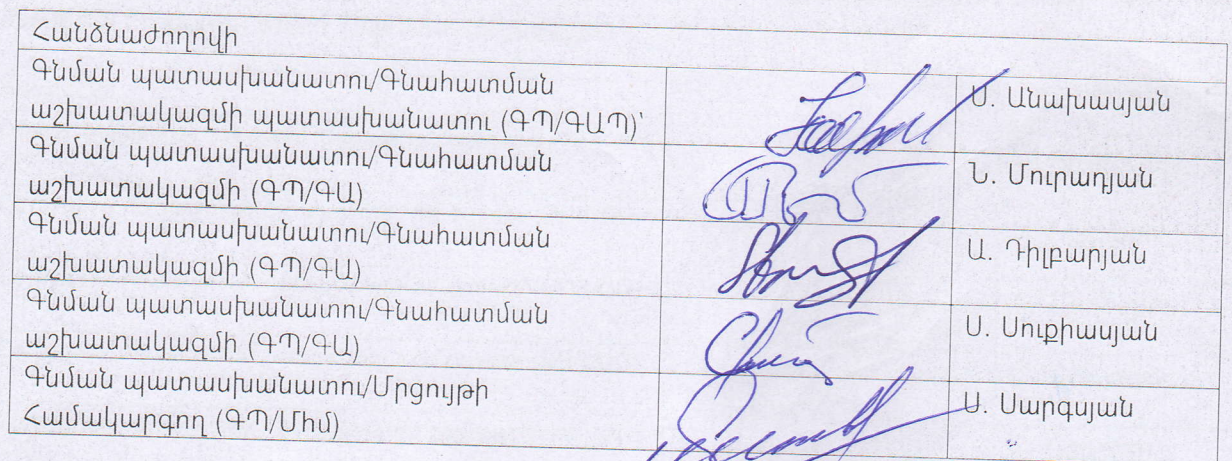 Հանձնաժողովի
Գնման պատասխանատու/Գնահատման
աշխատակազմի պատասխանատու (ԳՊ/ԳԱՊ)՝
Ս. Անախասյան
Գնման պատասխանատու/Գնահատման
աշխատակազմի (ԳՊ/ԳԱ)
Ն. Մուրադյան
Գնման պատասխանատու/Գնահատման
աշխատակազմի (ԳՊ/ԳԱ)
Ա. Դիլբարյան
Գնման պատասխանատու/Գնահատման
աշխատակազմի (ԳՊ/ԳԱ)
Ս. Սուքիասյան
Գնման պատասխանատու/Մրցույթի
Համակարգող (ԳՊ/Միմ)
Ս. Սարգսյան